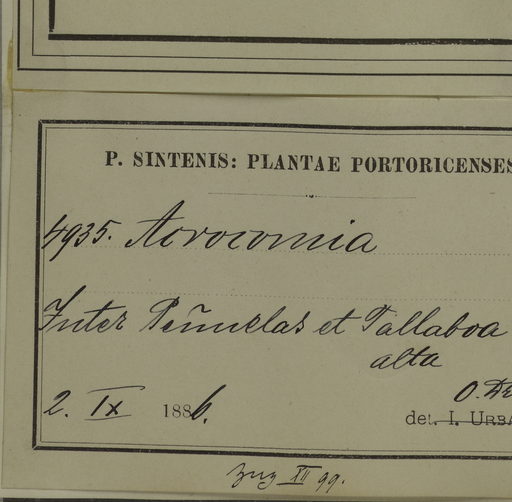 P. SINTENIS: PLANTAE PORTORICENSES
4935. Acrocomia
Inter Peñuelas et Tallaboa
alta
2. IX 1886.
O. De
det. I. URBA
XII 99.